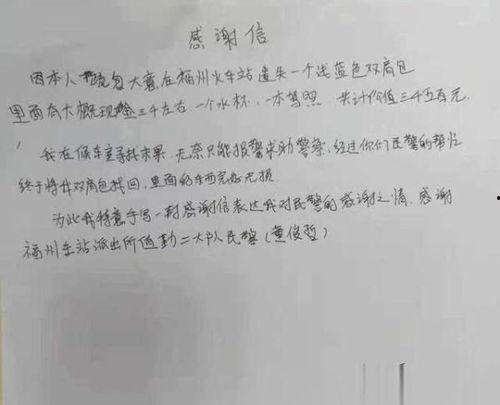 感谢信
因本人疏忽大意在福州火车站遗失一个浅蓝色双肩包
里面有大概现金三千左右 一个水杯，一本驾照 共计价值三千五百元.
我在候车室寻找未果，无奈只能报警求助警察，经过你们民警的帮忙
终于将我双肩包找回，里面的东西完好无损
为此我特意手写一封感谢信表达我对民警的感谢之情，感谢
福州车站派出所值勤二大队民警（黄俊哲）